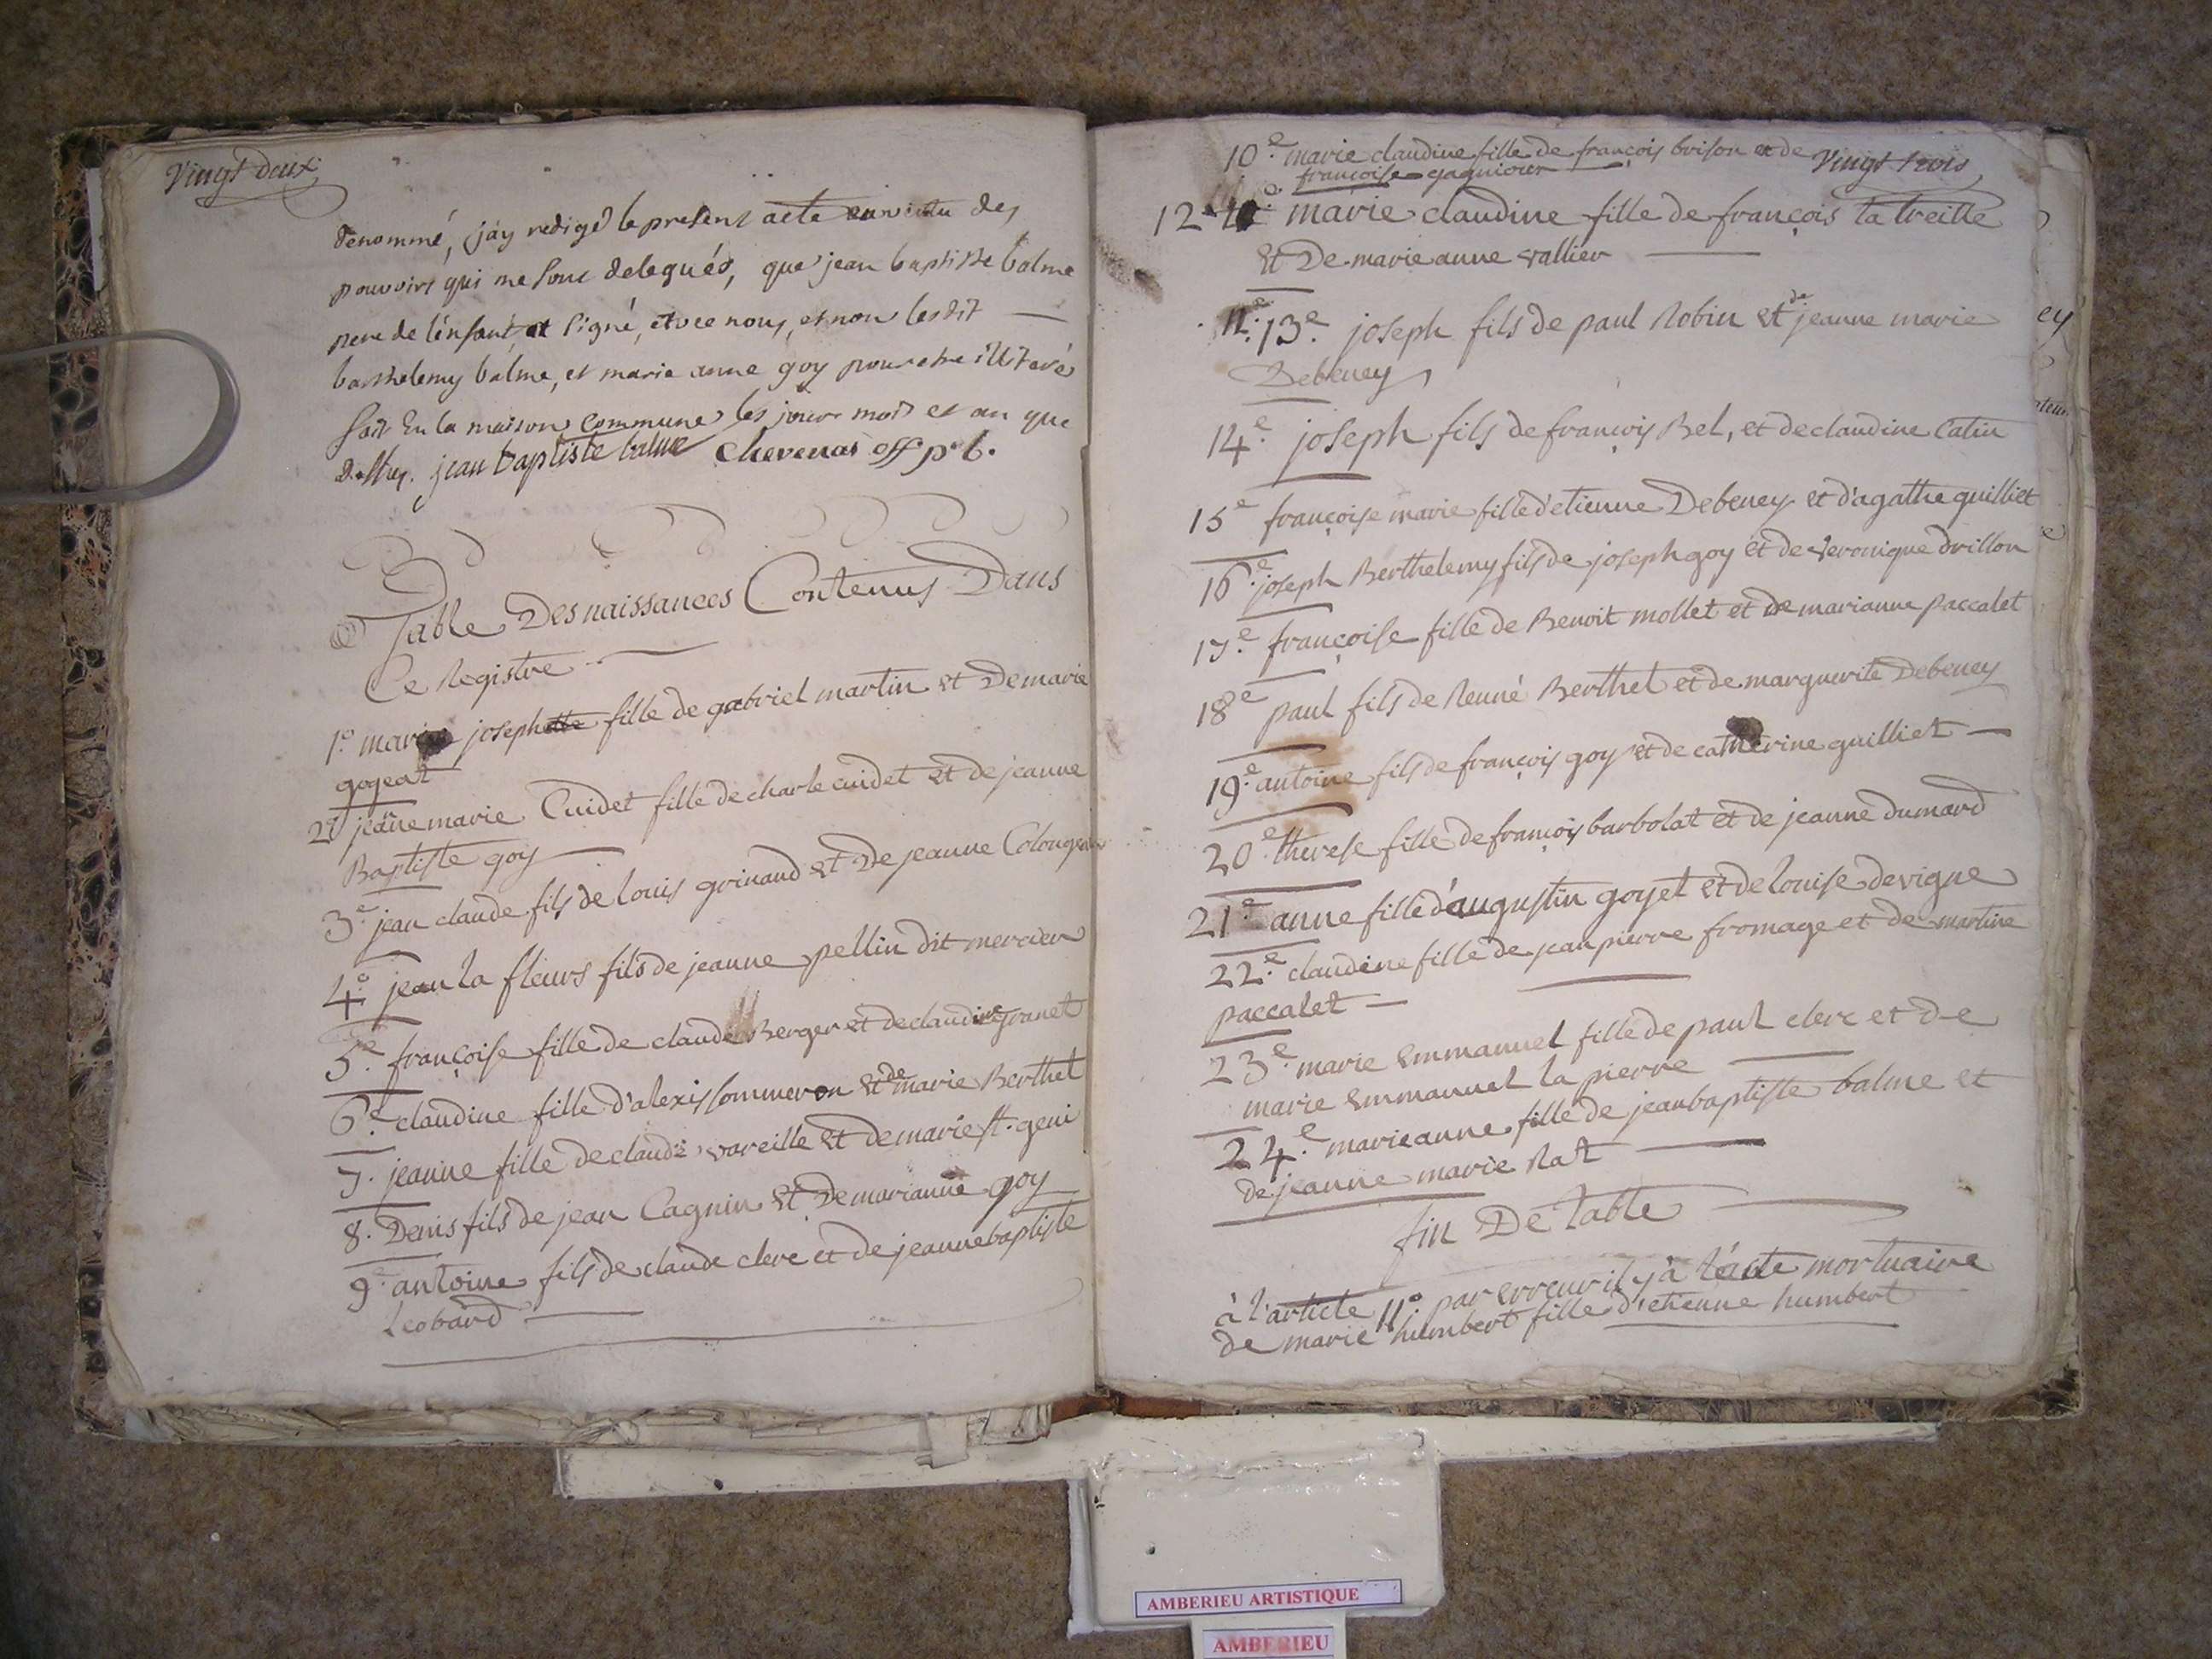 Vingt deux
denommé, j'ay redigé le present acte en vertu des
pouvoirs qui me sont delegués, que jean baptiste balme
pere de l'enfant at signé, avec nous, et non les dit
barthelemy balme, et marie anne goy pour etre illiteré
fait En la maison commune les jour mois et an que
dessus. jean baptiste balme Chevenas off pb.
Table Des naissances Contenus Dans
Ce Registre
1o. marie josephtte fille de gabriel martin et De marie
gojeat
2e jeanne marie Cuidet fille de charle cuidet et de jeanne
Baptiste goy
3e. jean claude fils de louis grinand et De jeanne
4e. jean la fleurs fils de jeanne pellin dit mercier
5e. françoise fille de claude Berger et de claudine granet
6e. claudine fille d'alexis sommeron et de marie Berthet
7. jeanne fille de claude vareille et de marie st. geni
8. Denis fils de jean Cagnin et De marianne goy
9e. antoine fils de claude clerc et de jeanne baptiste
Leobard
10e. marie claudine fille de françois brison et de
Vingt trois
françoise
12 marie claudine fille de françois la treille
et De marie anne vallier
13e. joseph fils de paul Robin et de jeanne marie
Debeney
14e. joseph fils de françois Bel, et de claudine Catin
15e françoise marie fille d'etienne Debeney et d'agathe guilliet
16e. joseph Berthelemy fils de joseph goy et de veronique drillon
17e. françoise fille de Benoit mollet et de marianne paccalet
18e paul fils de Renné Berthet et de marguerite Debeney
19e. antoine fils de françois goy et de catherine guilliet
20e. therese fille de françois barbolat et de jeanne dumard
21e. anne fille d'augustin goyet et de louise devigne
22e. claudine fille de jean pierre fromage et de martine
paccalet
23e. marie Emmanuel fille de paul clerc et de
marie Emmanuel la pierre
24e. marie anne fille de jean baptiste balme et
de jeanne marie Rat
fin De Table
à l'article 11o. par erreur il y à l'acte mortuaire
de marie humbert fille d'etienne humbert
AMBERIEU ARTISTIQUE
AMBERIEU